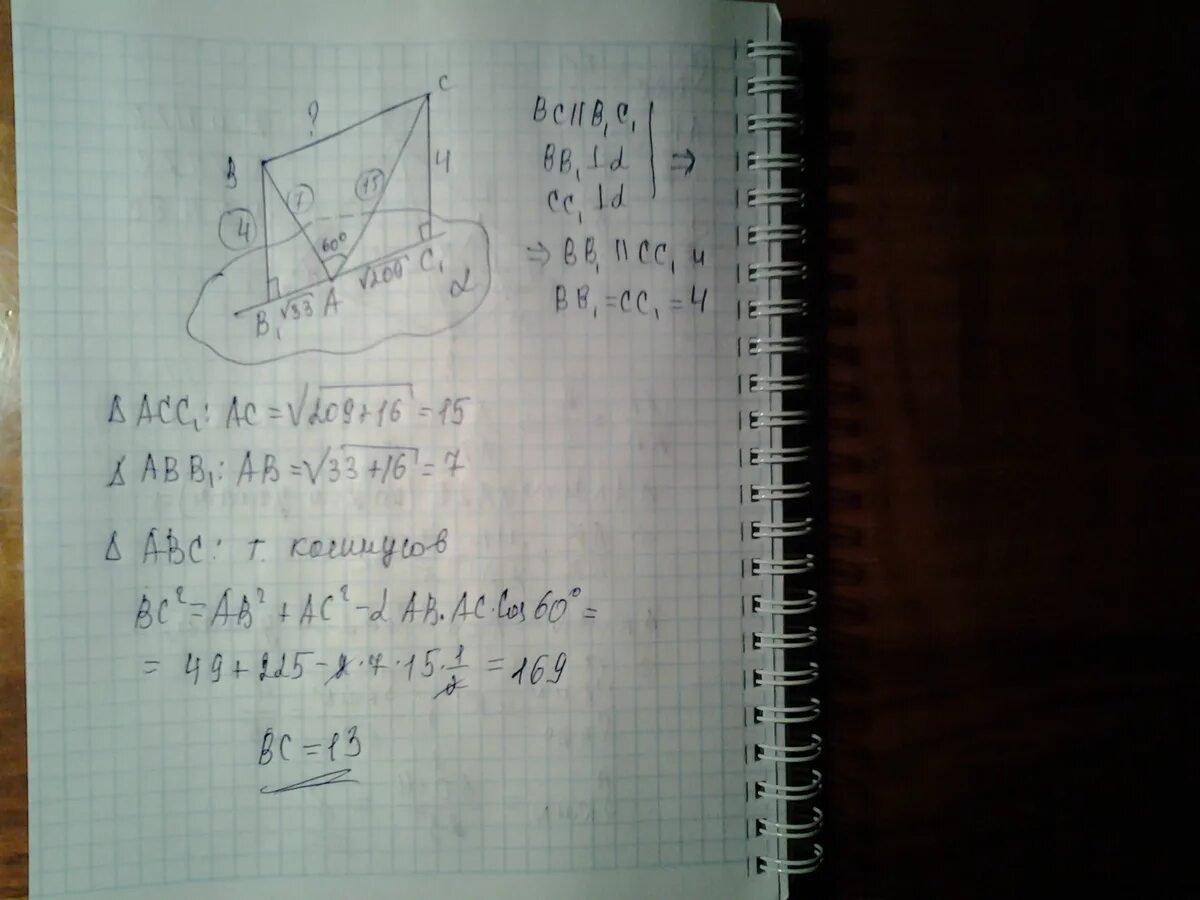 C
?
B
7
15
4
4
60°
√33
A
√209
C₁
B₁
α
BC || B₁C₁
BB₁ ⊥ α
CC₁ ⊥ α
⇒
⇒ BB₁ || CC₁ и
BB₁ = CC₁ = 4
Δ ACC₁: AC = √209+16 = 15
Δ ABB₁: AB = √33+16 = 7
Δ ABC: т. косинусов
BC² = AB² + AC² - 2 AB · AC · Cos 60° =
= 49 + 225 - 2 · 7 · 15 · 1/2 = 169
BC = 13